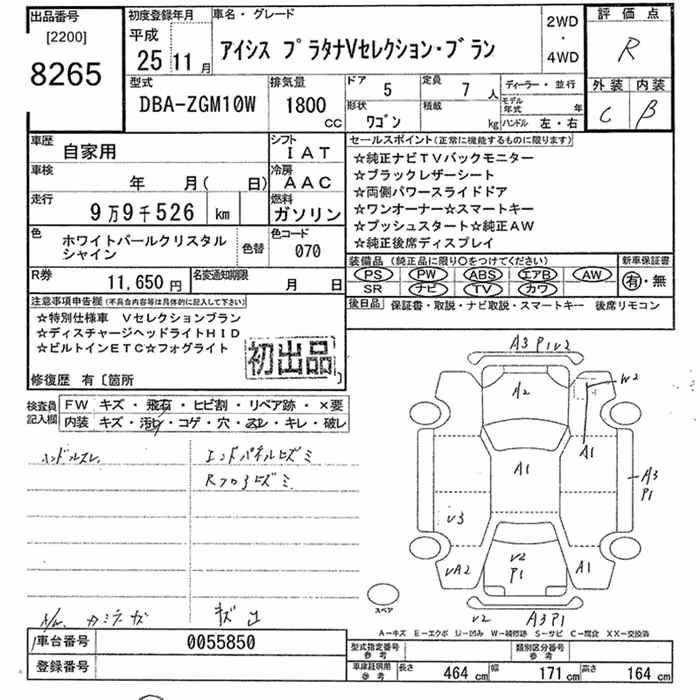 出品番号
[2200]
8265
初度登録年月
平成
25 11月
車名・グレード
アイシス プラタナVセレクション・ブラン
2WD
・
4WD
評価点
R
外装 内装
C B
型式
DBA-ZGM10W
排気量
1800 cc
ドア 5
定員 7 人
形状 ワゴン
積載 kg
ディーラー・並行
モデル年式 年
ハンドル 左・右
車歴 自家用
シフト IAT
車検 年 月( 日)
冷房 AAC
走行 9万9千526 km
燃料 ガソリン
色 ホワイトパールクリスタル
シャイン
色替
色コード 070
R券 11,650円
名変通知期限 月 日
セールスポイント(正常に機能するものに限ります)
☆純正ナビTVバックモニター
☆ブラックレザーシート
☆両側パワースライドドア
☆ワンオーナー☆スマートキー
☆プッシュスタート☆純正AW
☆純正後席ディスプレイ
装備品 (純正品に限り○をつけてください)
PS PW ABS エアB AW
SR ナビ TV カワ
新車保証書
有・無
後日品 保証書・取説・ナビ取説・スマートキー 後席リモコン
注意事項申告欄(不具合内容等は具体的に記入して下さい)
☆特別仕様車 Vセレクションブラン
☆ディスチャージヘッドライトHID
☆ビルトインETC☆フォグライト
初出品
修復歴 有〔箇所
検査員
記入欄
FW キズ・飛石・ヒビ割・リペア跡・×要
内装 キズ・汚レ・コゲ・穴・スレ・キレ・破レ
ハンドルスレ
エンドパネルヒズミ
Rフロアヒズミ
キズ
A3 P1 V2
A2
W2
A1
A1
A3
P1
V3
V2
P1
VA2
A1
V2
A3P1
スペア
A-キズ E-エクボ U-凹み W-補修跡 S-サビ C-腐食 XX-交換済
車台番号 0055850
登録番号
型式指定番号
参考
類別区分番号
参考
車庫証明用
参考
長さ 464 cm
幅 171 cm
高さ 164 cm